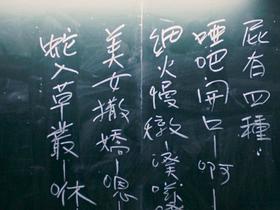 屁有四種:
啞吧開口-啊
細火慢燉-噗嗤
美女撒嬌-嗯
蛇入草叢-咻